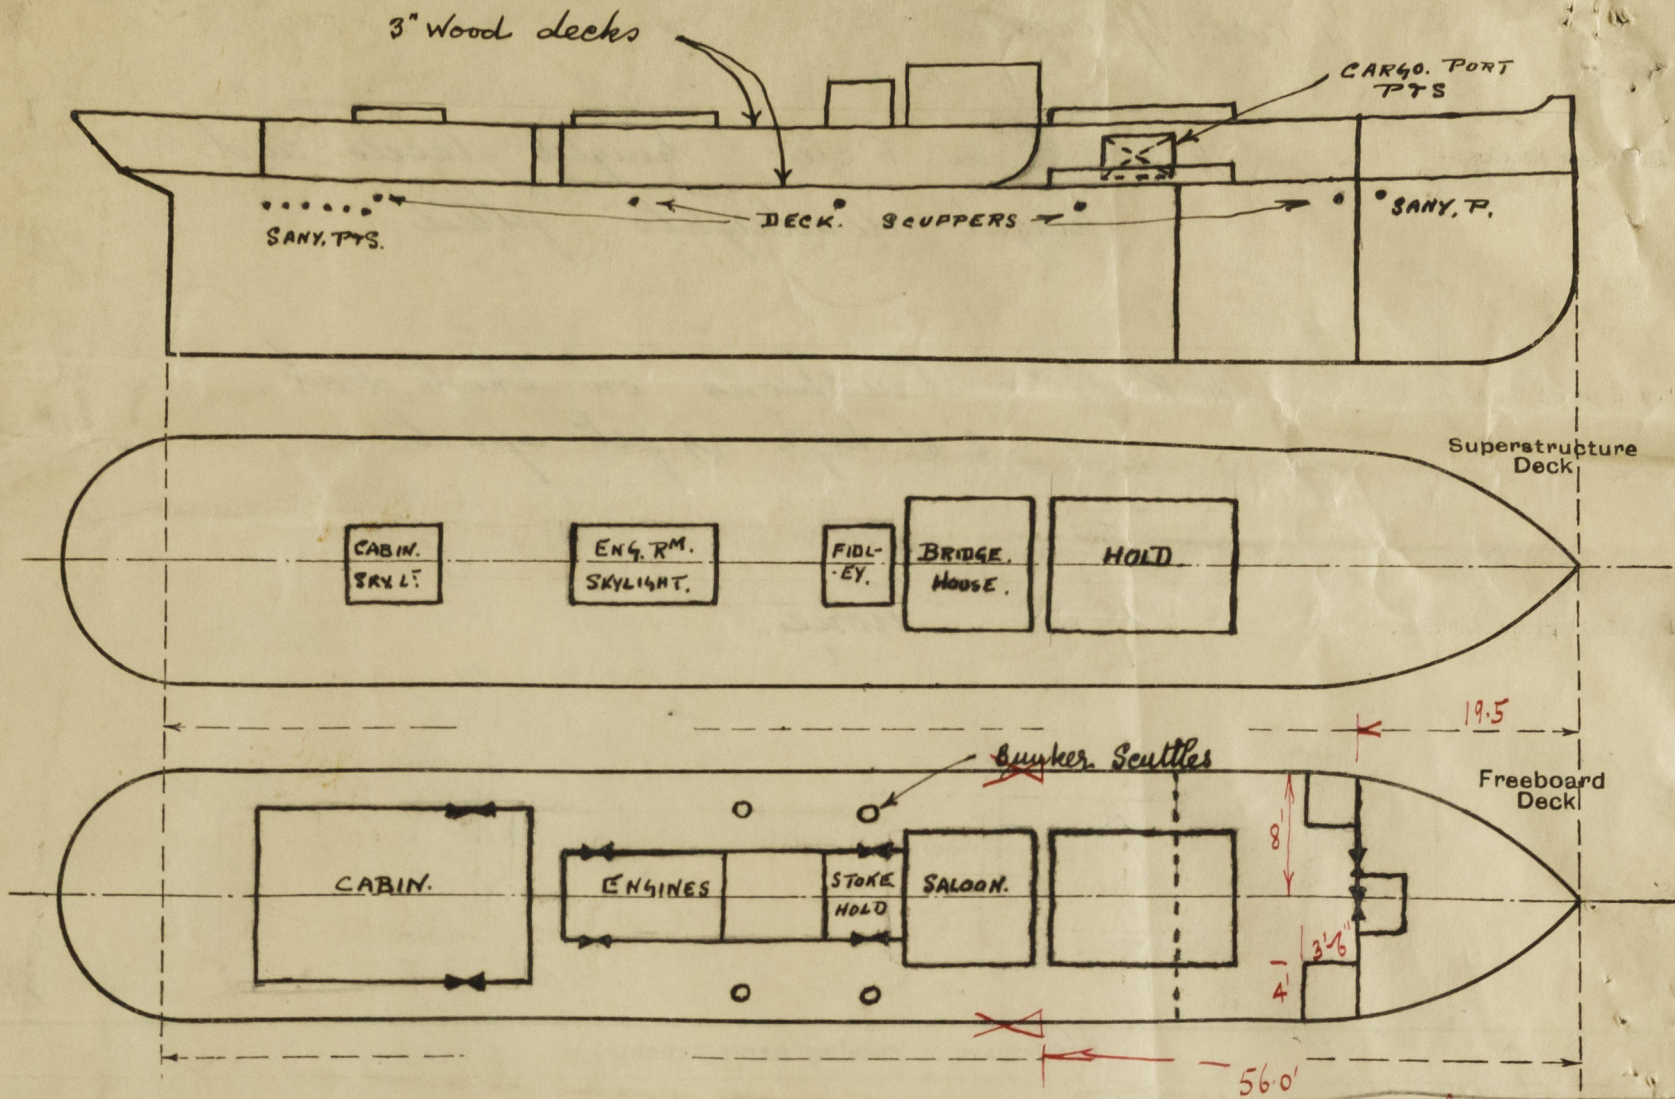 3" Wood decks
CARGO. PORT
P & S
SANY. P & S.
DECK. SCUPPERS
SANY. P.
Superstructure
Deck
CABIN.
SKYLT.
ENG. RM.
SKYLIGHT.
FIDL-
-EY.
BRIDGE.
HOUSE.
HOLD
19.5
Bunker Scuttles
Freeboard
Deck
8'
CABIN.
ENGINES
STOKE
HOLD
SALOON.
3'-6"
4'
56.0'